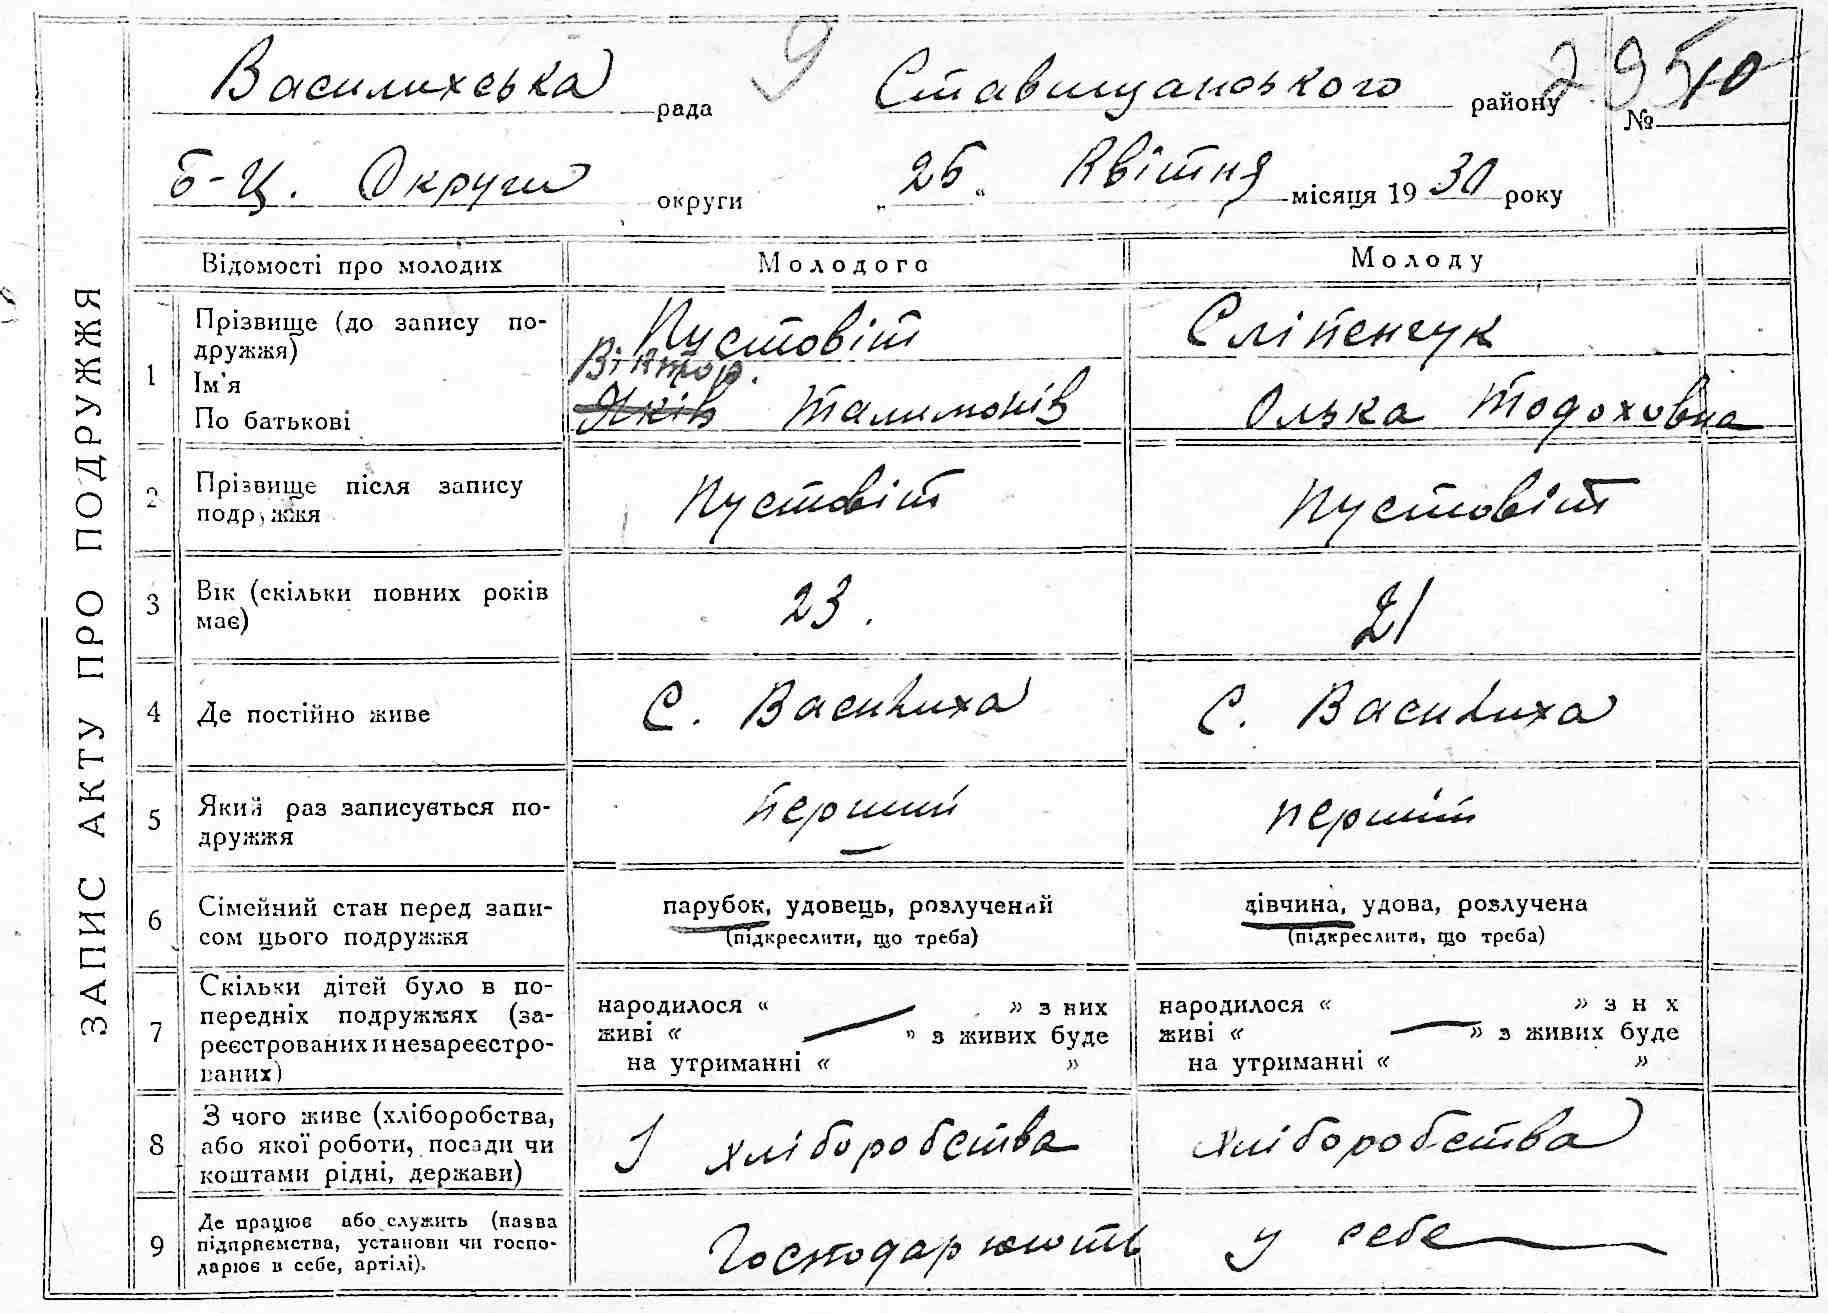 ЗАПИС АКТУ ПРО ПОДРУЖЖЯ
Василихська рада 9 Ставищанського району 295 № 10
Б-Ц. Округи округи „ 26 “ Квітня місяця 19 30 року
Відомості про молодих Молодого Молоду
1 Прізвище (до запису по- Пустовіт Сліпенчук
дружжя)
Ім'я Віктор
По батькові Яків Талимонів Олька Тодоховна
2 Прізвище після запису Пустовіт Пустовіт
подружжя
3 Вік (скільки повних років 23. 21
має)
4 Де постійно живе С. Василиха С. Василиха
5 Який раз записується по- перший перший
дружжя
6 Сімейний стан перед запи- парубок, удовець, розлучений дівчина, удова, розлучена
сом цього подружжя (підкреслити, що треба) (підкреслити, що треба)
7 Скільки дітей було в по-
передніх подружжях (за- народилося “ ” з них народилося “ ” з н х
реєстрованих и незареєстро- живі “ — ” з живих буде живі “ — ” з живих буде
ваних) на утриманні “ ” на утриманні “ ”
8 З чого живе (хліборобства,
або якої роботи, посади чи З хліборобства хліборобства
коштами рідні, держави)
9 Де працює або служить (назва
підприємства, установи чи госпо- Господарюють у себе
дарює в себе, артілі).